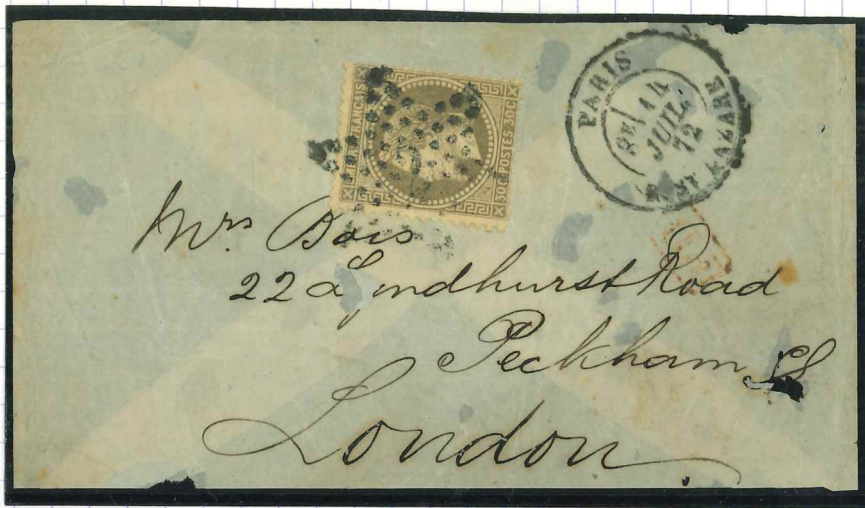 EMPIRE FRANÇAIS
30C POSTES 30C
PARIS
2E / 14
JUIL.
72
R. ST LAZARE
Mrs Bois
22 a Lyndhurst Road
Peckham
London